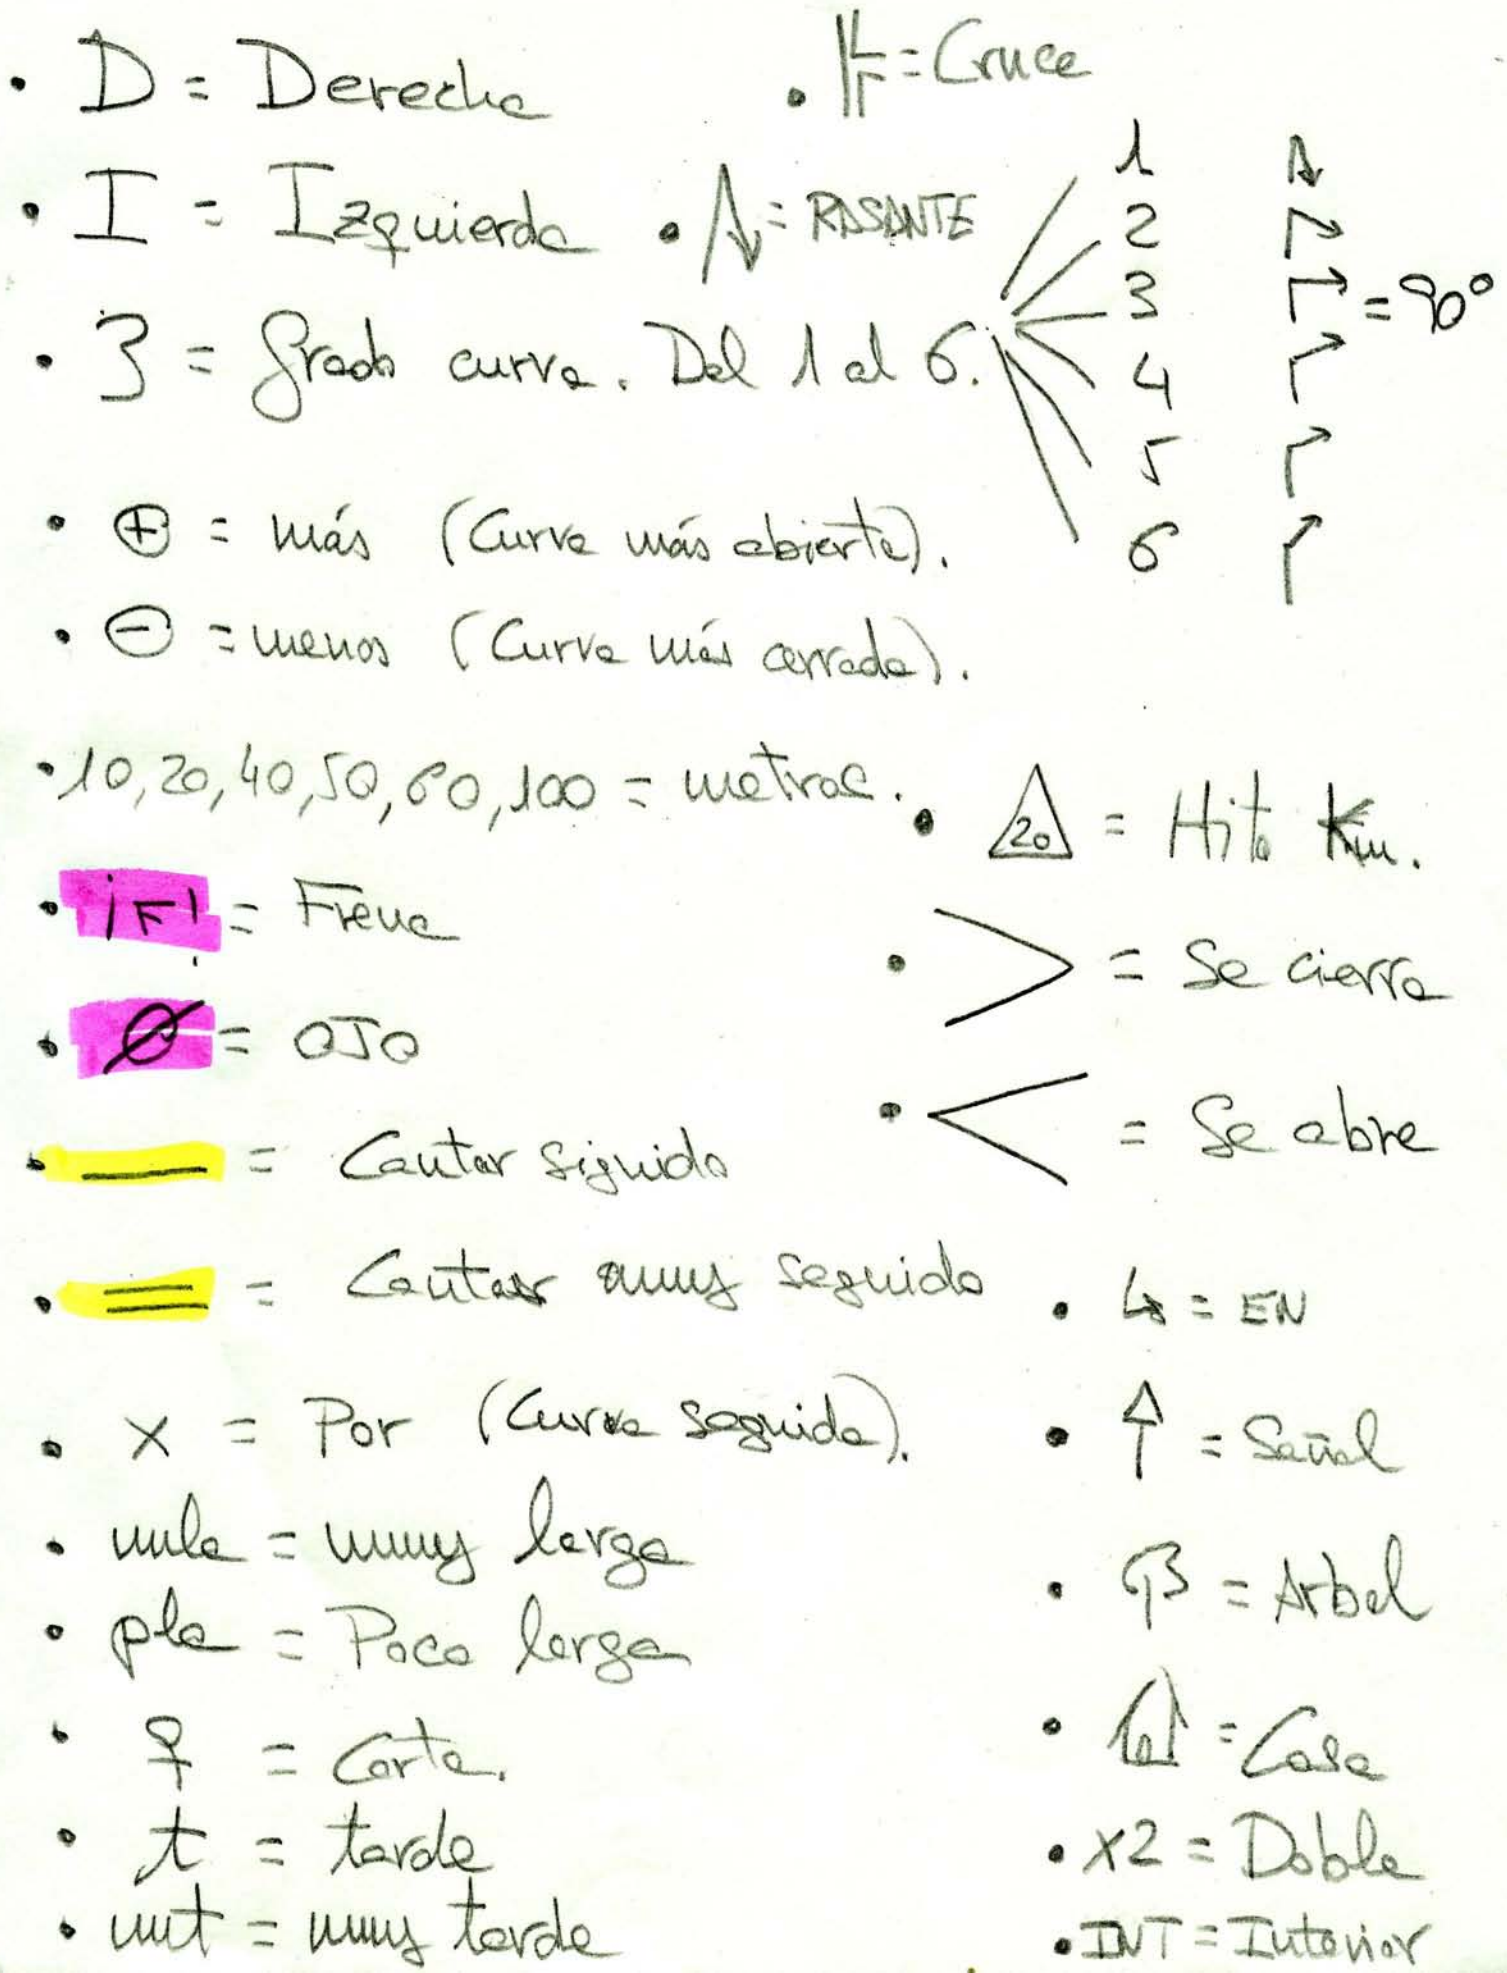 • D = Derecha
• I = Izquierda
• 3 = Grado curva. Del 1 al 6.
• ⊕ = más (Curva más abierta).
• ⊖ = menos (Curva más cerrada).
• 10, 20, 40, 50, 60, 100 = metros.
• ¡F! = Frena
• Ø = OJO
• — = Cantar siguido
• = = Cantar muy seguido
• x = Por (Curva seguida).
• mla = muy larga
• pla = Poco larga
• ♀ = Corta.
• t = tarde
• mt = muy tarde
• = Cruce
• = RASANTE
1
2
3 = 90°
4
5
6
• 20 = Hito Km.
• > = Se cierra
• < = Se abre
• ↳ = EN
• ↑ = Señal
• = Arbol
• = Casa
• X2 = Doble
• INT = Interior